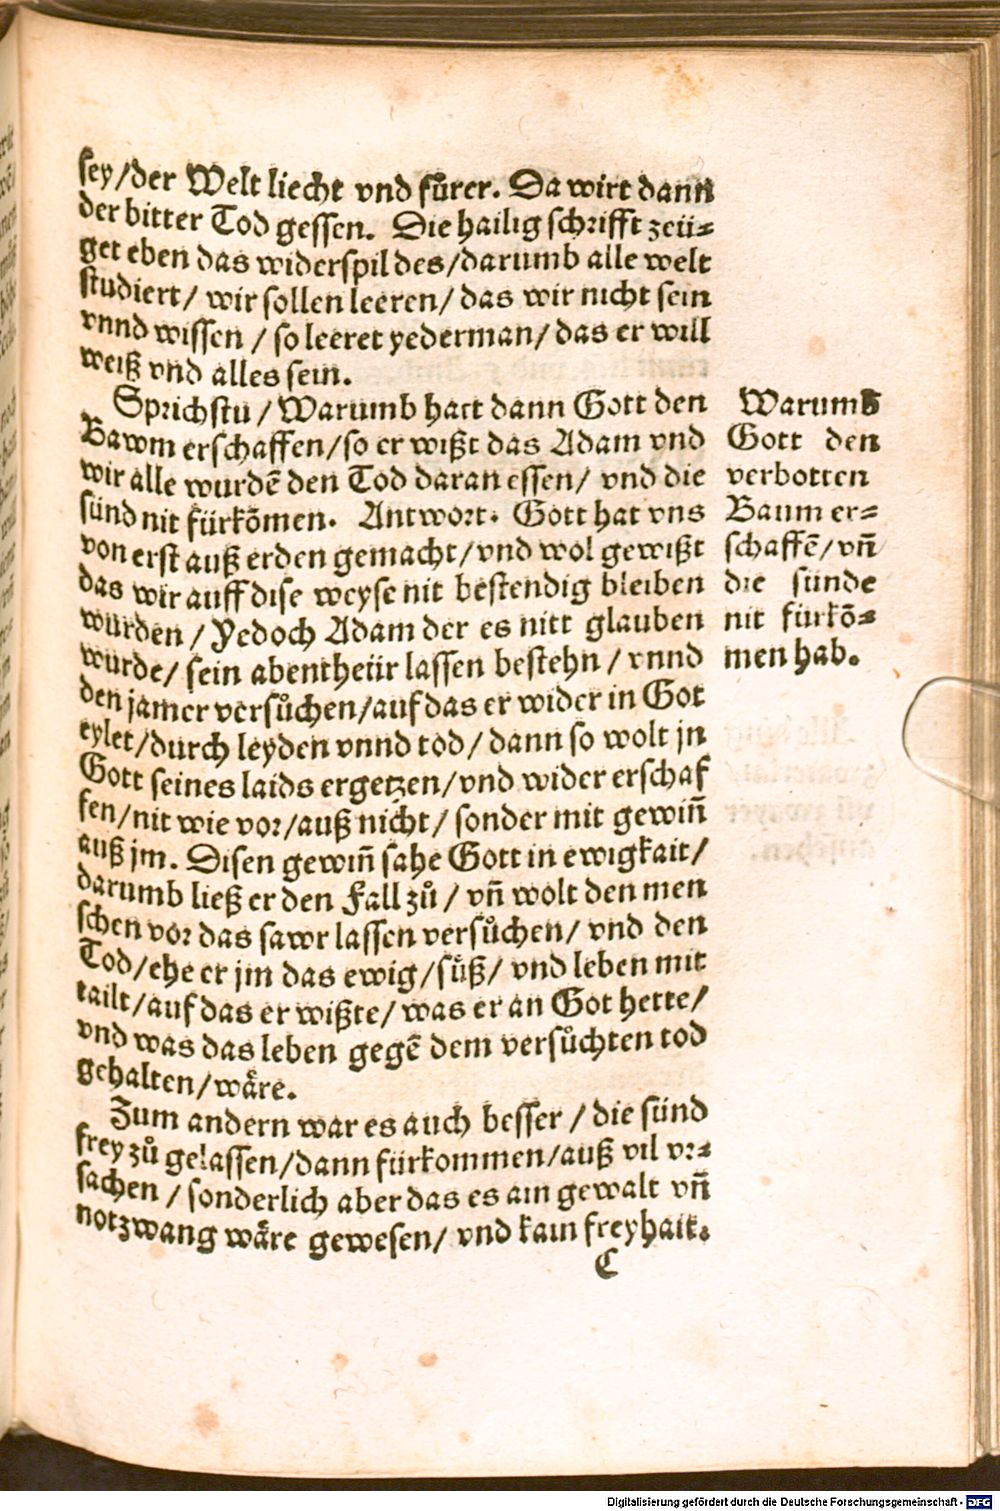 sey/der Welt liecht vnd fůrer. Da wirt dann
der bitter Tod gessen. Die hailig schrifft zeü⸗
get eben das widerspil des/darumb alle welt
studiert/ wir sollen leeren/ das wir nicht sein
vnnd wissen / so leeret yederman/ das er will
weiß vnd alles sein.
Sprichstu / Warumb hatt dann Gott den
Bawm erschaffen/so er wißt das Adam vnd
wir alle wurdẽ den Tod daran essen/ vnd die
sünd nit fürkõmen. Antwort. Gott hat vns
von erst auß erden gemacht/vnd wol gewißt
das wir auff dise weyse nit bestendig bleiben
würden / Yedoch Adam der es nitt glauben
wurde/ sein abentheür lassen bestehn / vnnd
den jamer versůchen/auf das er wider in Got
eylet/durch leyden vnnd tod/ dann so wolt jn
Gott seines laids ergetzen/vnd wider erschaf
fen/nit wie vor/auß nicht/ sonder mit gewiñ
auß jm. Disen gewiñ sahe Gott in ewigkait/
darumb ließ er den Fall zů / vñ wolt den men
schen vor das sawr lassen versůchen/ vnd den
Tod/ehe er jm das ewig/süß/ vnd leben mit
tailt/auf das er wißte/ was er an Got hette/
vnd was das leben gegẽ dem versůchten tod
gehalten/wåre.
Zum andern war es auch besser / die sünd
frey zů gelassen/dann fürkommen/auß vil vr⸗
sachen / sonderlich aber das es ain gewalt vñ
notzwang wåre gewesen/ vnd kain freyhait.
C
Warumb
Gott den
verbotten
Baum er⸗
schaffẽ/vñ
die sünde
nit fürkõ⸗
men hab.
Digitalisierung gefördert durch die Deutsche Forschungsgemeinschaft - DFG